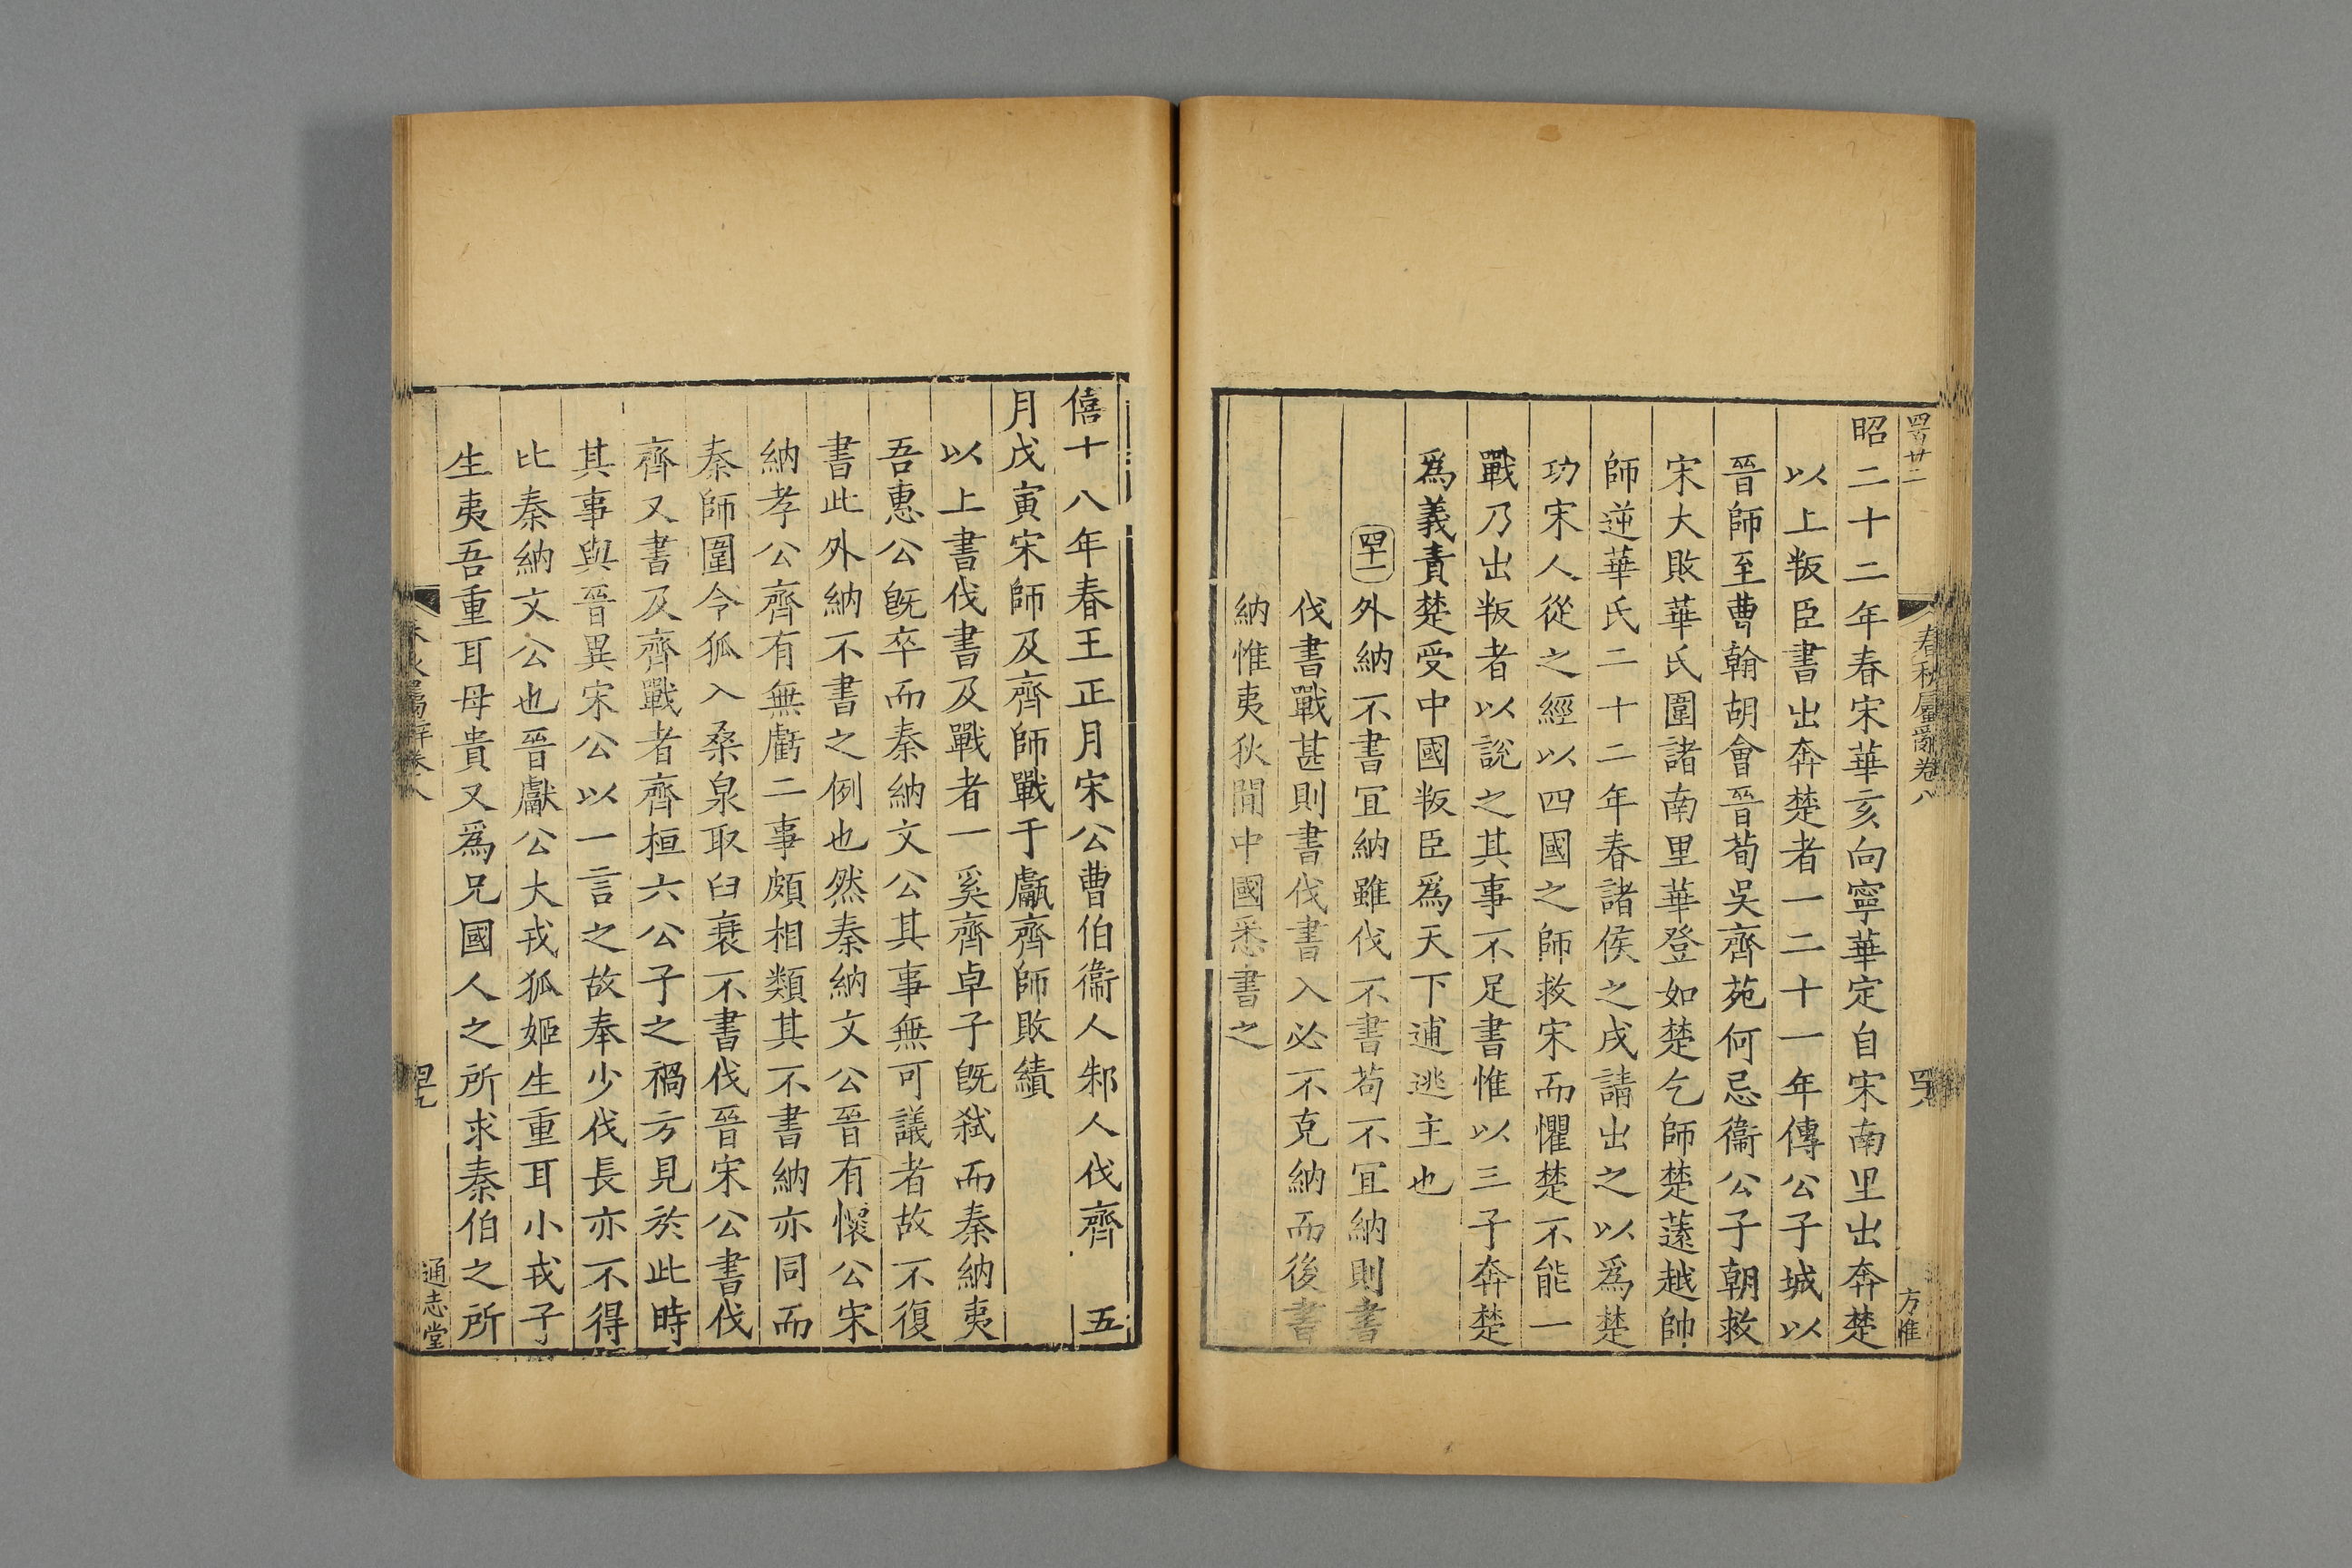 昭二十二年春宋華亥向寧華定自宋南里出奔楚
以上叛臣書出奔楚者一二十一年傳公子城以
晉師至曹翰胡會晉荀吳齊苑何忌衞公子朝救
宋大敗華氏圍諸南里華登如楚乞師楚薳越帥
師逆華氏二十二年春諸侯之戍請出之以爲楚
功宋人從之經以四國之師救宋而懼楚不能一
戰乃出叛者以說之其事不足書惟以三子奔楚
爲義責楚受中國叛臣爲天下逋逃主也
四十一外納不書宜納雖伐不書苟不宜納則書
伐書戰甚則書伐書入必不克納而後書
納惟夷狄閒中國悉書之
春秋屬辭卷八
方惟
僖十八年春王正月宋公曹伯衞人邾人伐齊 五
月戊寅宋師及齊師戰于甗齊師敗績
以上書伐書及戰者一奚齊卓子旣弑而秦納夷
吾惠公旣卒而秦納文公其事無可議者故不復
書此外納不書之例也然秦納文公晉有懷公宋
納孝公齊有無虧二事頗相類其不書納亦同而
秦師圍令狐入桑泉取臼衰不書伐晉宋公書伐
齊又書及齊戰者齊桓六公子之禍方見於此時
其事與晉異宋公以一言之故奉少伐長亦不得
比秦納文公也晉獻公大戎狐姬生重耳小戎子
生夷吾重耳母貴又爲兄國人之所求秦伯之所
春秋屬辭卷八
四十九
通志堂